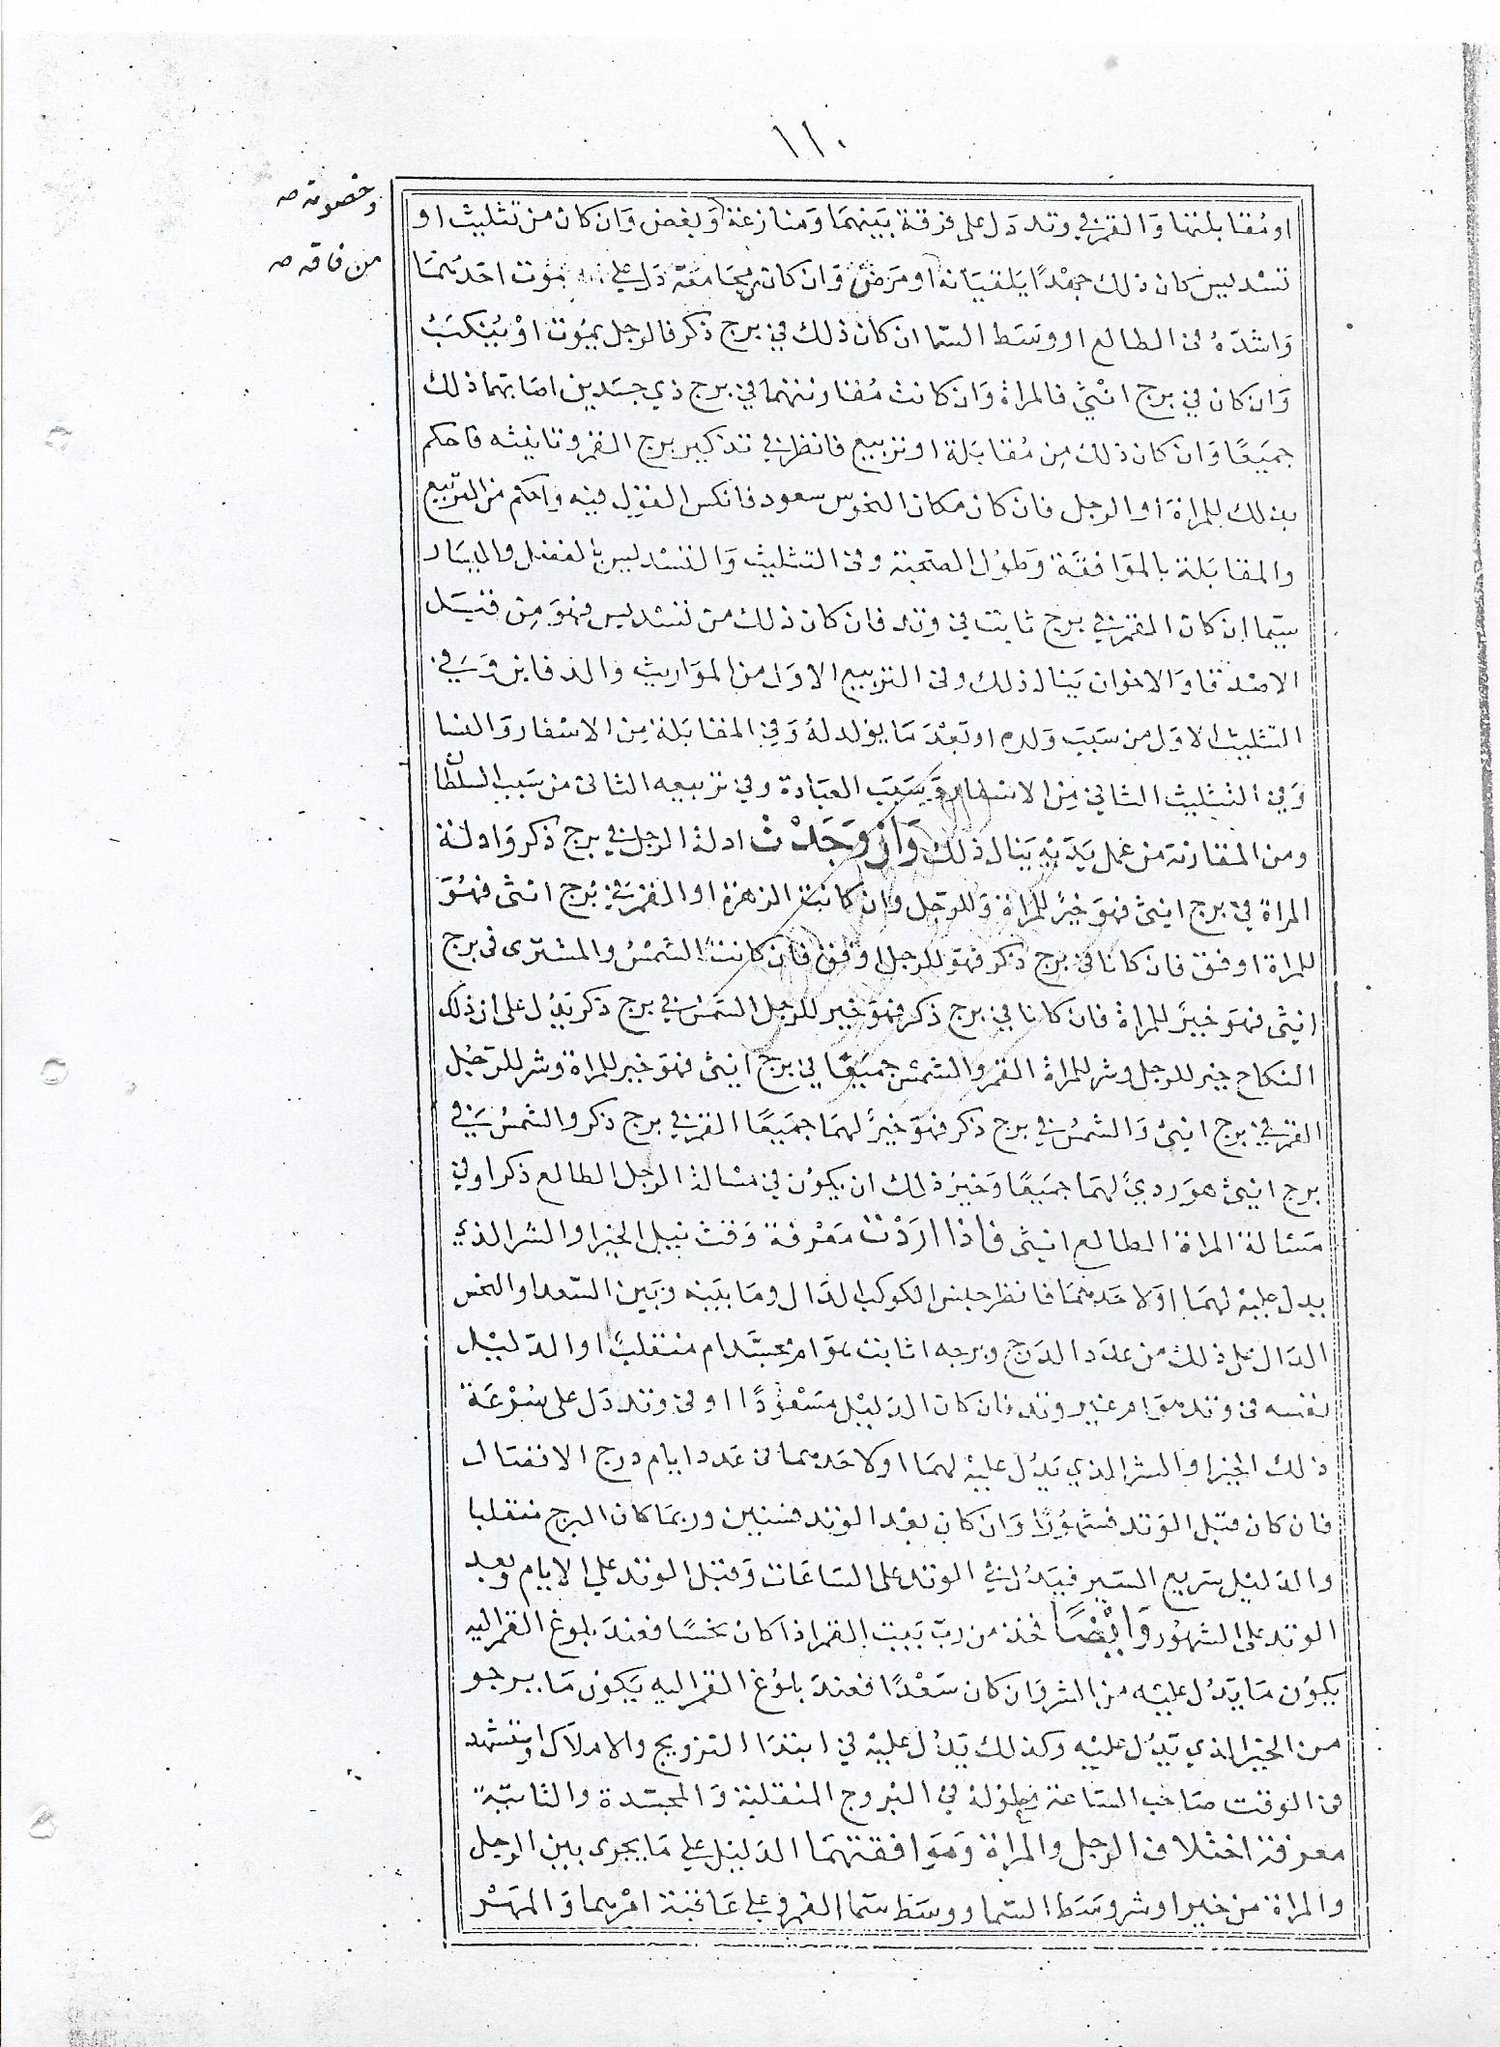 ١١٠
وخصومة صه
من فاقه صه
او مُقابلتها وَالقمر في وتد دَل على فرقة بَينهمَا وَمنازعة وَبغض وَان كان من تثليث او
تسْديس كان ذلك جهْدًا يَلقيَانه او مَرَض وَان كان مجَامعَة دَل على موت احَدهمَا
وَاشدّهُ في الطالع او وَسَط السّما ان كان ذلك في برج ذكر فالرجل يموُت اوْ يُنكبُ
وَان كان في برج انثي فالمراة وَان كانت مُقارنتهما في برج ذي جسَدين اصَابَهما ذلك
جميَعًا وَان كان ذلك مِن مُقابَلة او تربيع فانظر في تذكير برج القمر وتانيثه فاحكم
بذلك للمراة او الرجل فان كان مكان النحوس سعود فانكس القول فيه واحكم من التربيع
والمقابَلة بالموَافقَة وَطوُل الصحبَة وفى التثليث وَالتسْديس بالفضل واليسَار
سيّما ان كان القمر في برج ثابت في وتد فان كان ذلك من تسْديس فهوَ مِن قبَل
الاصْدقا وَالاخوان يَنال ذلك وفى التربيع الاوَل من الموَاريث والدفاين وَفي
التثليث الاوَل من سَبَب وَلده او بَعْدَ مَا يوُلد لهُ وَفي المقابَلة مِن الاسْفار وَالنسَا
وَفي التثليث الثاني مِن الاسْفار وَسَبَب العبَادة وفي تربيعه الثاني من سَبب السلطان
ومن المقارنة من عمل يَدَيْه يَنال ذلك وَانْ وَجَدْتَ ادلة الرجل في برج ذكر وَادلة
المراة في برج انثى فهوَ خيرٌ للمراة وَللرجل وان كانت الزهرة او القمر في برُج انثى فهُوَ
للمراة اوفق فان كانا في برج ذكر فهوَ للرجل اوفق فان كانت الشمْسُ والمشترى في برج
انثى فهوَ خيرٌ للمراة فان كانا في برج ذكر فهوَ خير للرجل الشمْسُ في برج ذكر يَدُل على ان ذلك
النكاح خير للرجل وشر للمراة القمر والشمْس جميَعًا في برج انثى فهوَ خير للمراة وشر للرّجُل
القمر في برج انثى وَالشمسُ في برج ذكر فهوَ خيرٌ لهمَا جميَعًا القمر في برج ذكر والشمسُ في
برج انثى هوَ رديٌ لهمَا جميَعًا وَخيرُ ذلك ان يكوُن في مسْالة الرجل الطالع ذكر اوفي
مسَئالة المراة الطالع انثى فاذا ارَدْت مَعْرفة وَقت نيل الخير او الشر الذي
يدل عليْه لهمَا اوْ لاحَدهمَا فانظر جنس الكوكب الدَال ومَا بيَنه وَبَين السّعد او النحس
الدَال على ذلك من عدَد الدَرج وبرجه اثابت هوَام مجسَّد ام منقلبٌ او الدّليْل
نفسه في وتد هوَ ام غير وتد فان كان الدليْل مَسْعوُدًا او في وتد دَل على سُرْعَة
ذلك الخير او الشر الذي يَدُل عليْه لهمَا او لاحَدهما فى عَدد ايام درج الاتصال
فان كان قبل الوتد فشهوُرًا وَان كان بعْد الوتد فسنين وربمَا كان البرج منقلبا
والدَليْل سَريع السّير فيدُل في الوتد على السَاعَات وَقبل الوتد على الايام وبعد
الوتد على الشهوُر وَايْضًا فخذ من ربّ بَيت القمر اذا كان نحْسًا فعندَ بلوغ القمر اليه
يكوُن مَا يَدُل عليْه من الشر وَان كان سَعْدًا فعندَ بلوُغ القمر اليه يَكوُن مَا يرجو
من الخير الذي يَدُل عليْه وكذلك يَدُل عليْه في ابتدَا التزويج والاملاك وتستشهد
في الوقت صَاحب السَاعة بحلوله في البُروج المنقلبة وَالمجسّدة والثابتة
معرفة اختلاف الرجل والمراة وَموَافقتهمَا الدَليْل على مَا يجرى بين الرجل
والمراة من خير او شر وَسَط السّما ووسَط سّما القمر وعلى عَاقبَة امْرهما وَالمَهْر